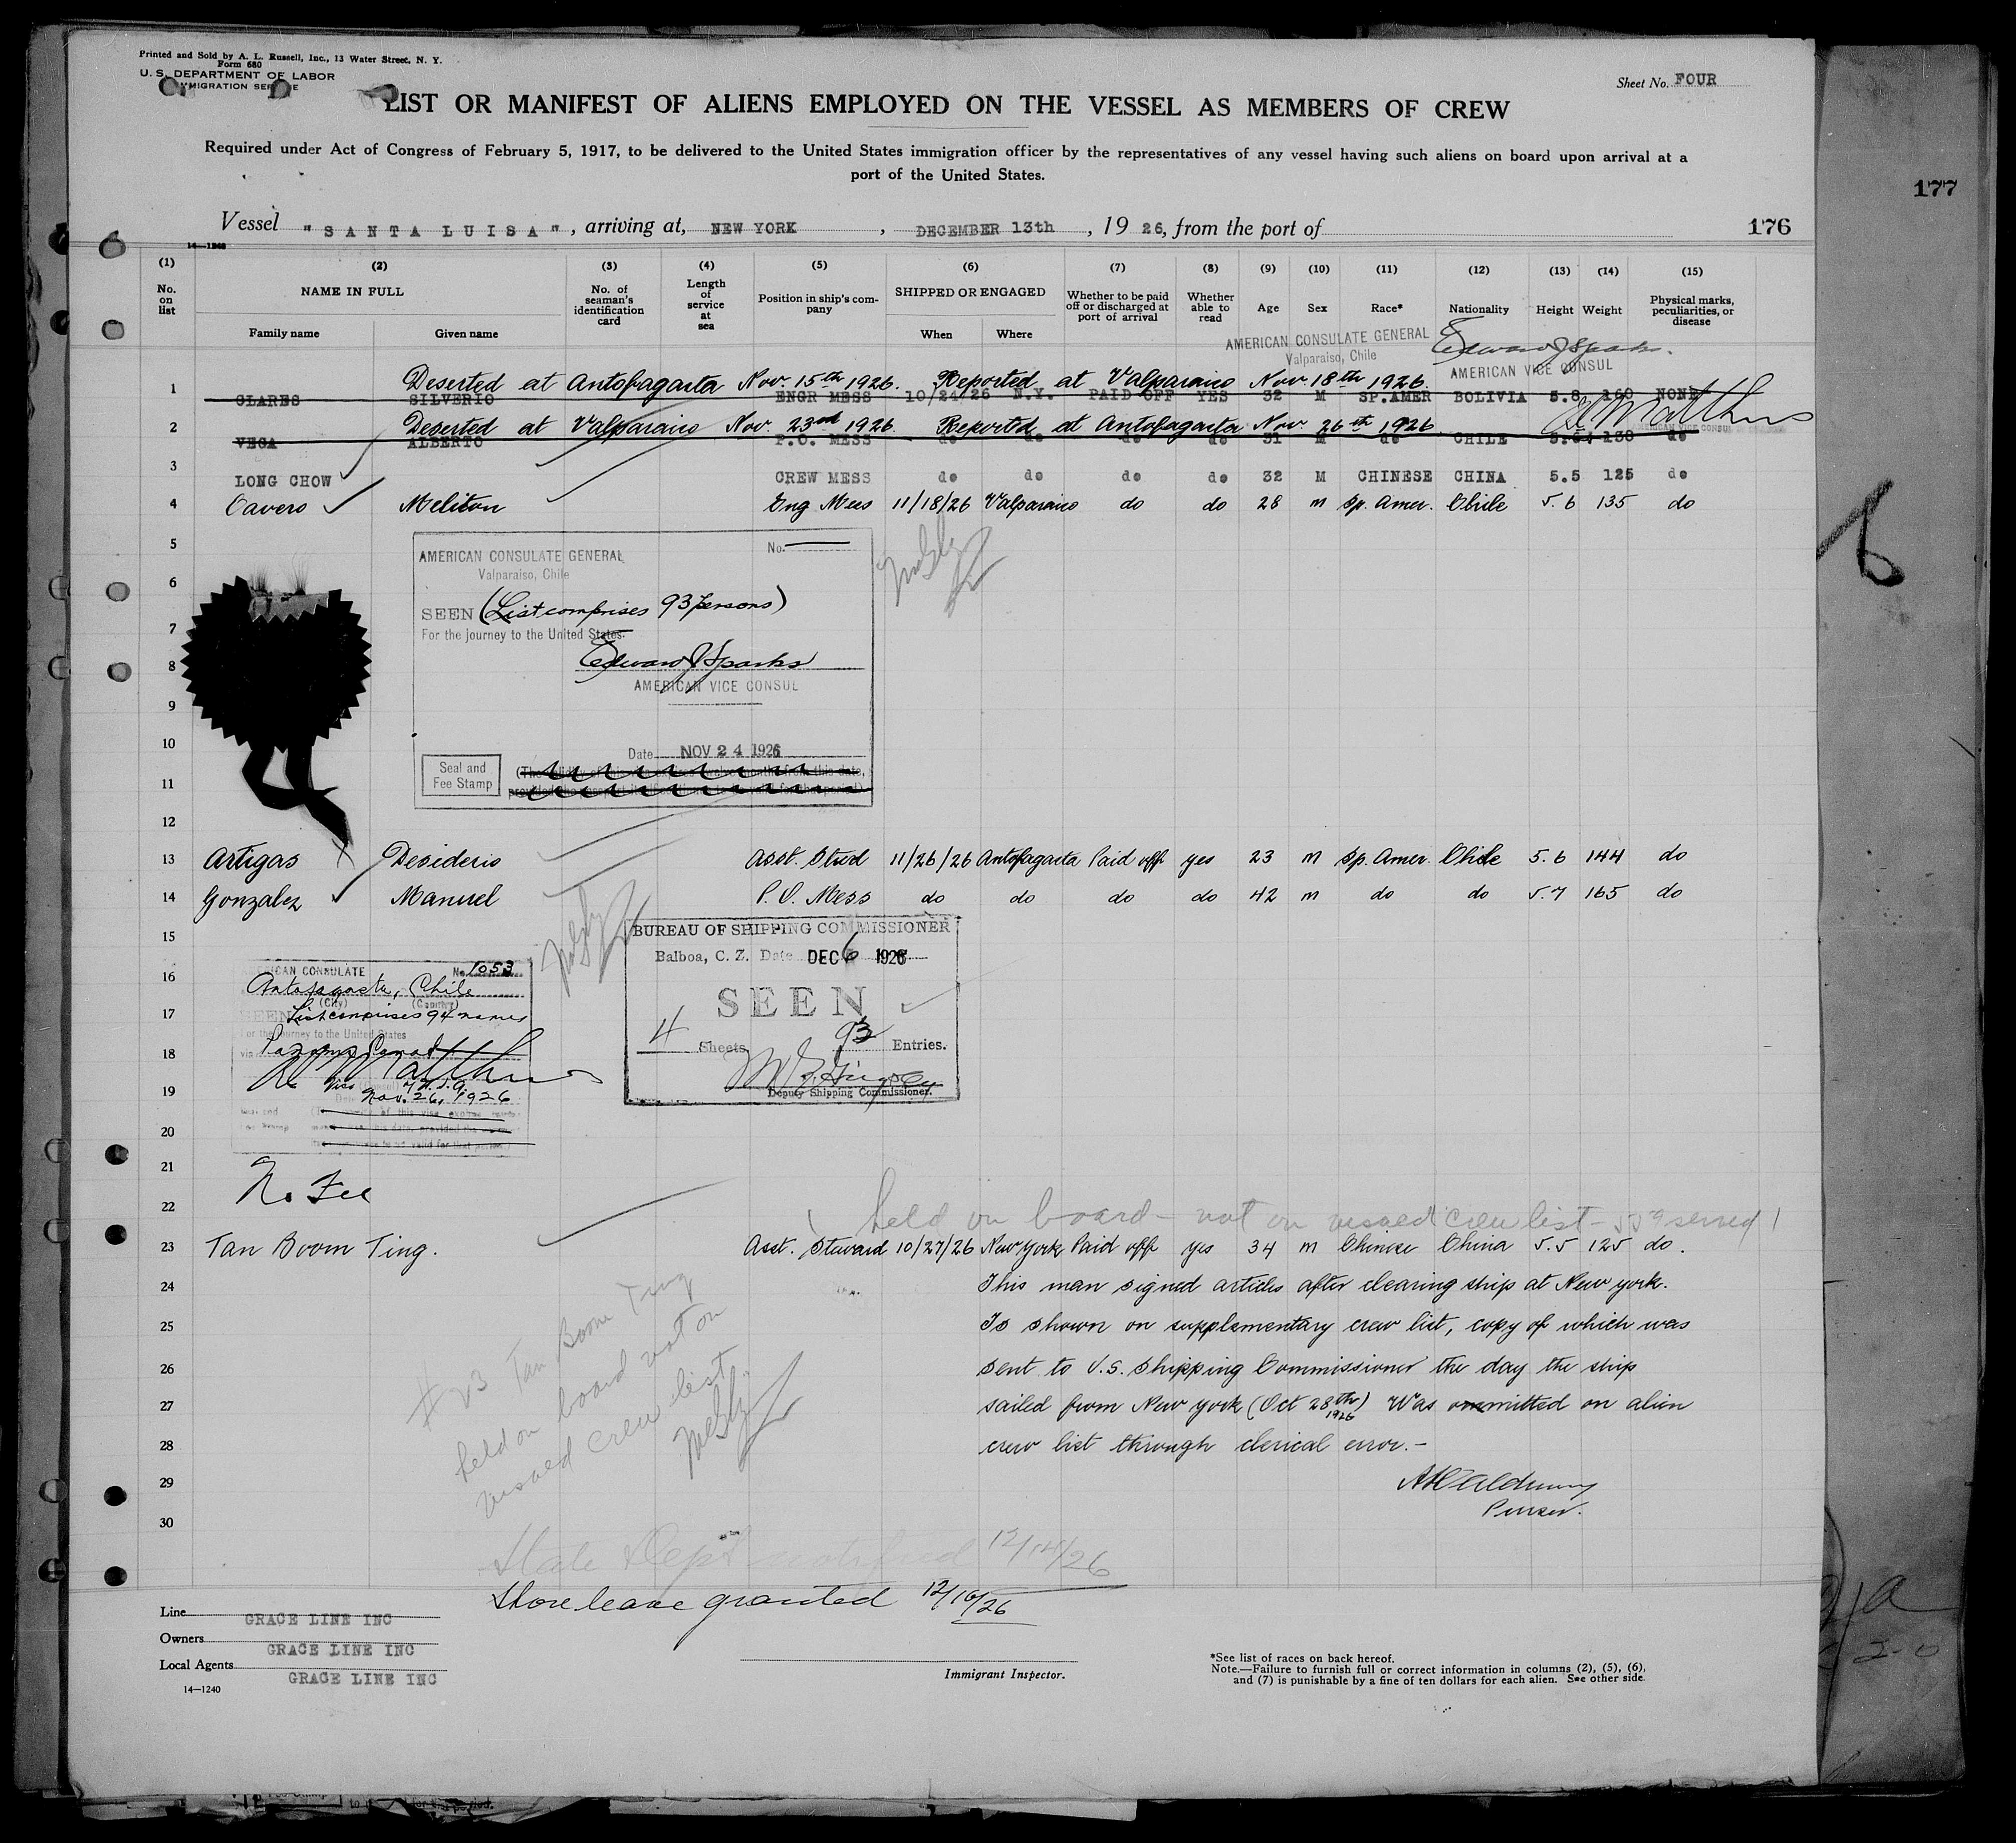 Printed and Sold by A. L. Russell, Inc., 13 Water Street, N. Y.
Form 680
U. S. DEPARTMENT OF LABOR
IMMIGRATION SERVICE
Sheet No. FOUR
LIST OR MANIFEST OF ALIENS EMPLOYED ON THE VESSEL AS MEMBERS OF CREW
Required under Act of Congress of February 5, 1917, to be delivered to the United States immigration officer by the representatives of any vessel having such aliens on board upon arrival at a
port of the United States.
177
Vessel "SANTA LUISA", arriving at, NEW YORK, DECEMBER 13th, 1926, from the port of
176
14—1240
(1) (2) (3) (4) (5) (6) (7) (8) (9) (10) (11) (12) (13) (14) (15)
No. on list
NAME IN FULL
Family name Given name
No. of seaman's identification card
Length of service at sea
Position in ship's company
SHIPPED OR ENGAGED
When Where
Whether to be paid off or discharged at port of arrival
Whether able to read
Age Sex Race* Nationality Height Weight
Physical marks, peculiarities, or disease
AMERICAN CONSULATE GENERAL
Valparaiso, Chile
Edward J Sparks.
AMERICAN VICE CONSUL
Deserted at Antofagasta Nov. 15th 1926. Reported at Valparaiso Nov. 18th 1926.
1 CLARES SILVERIO ENGR MESS 10/24/26 N.Y. PAID OFF YES 32 M SP.AMER BOLIVIA 5.8 160 NONE
Deserted at Valparaiso Nov. 23rd 1926. Reported at Antofagasta Nov. 26th 1926
2 VEGA ALBERTO P.O. MESS do do do do 31 M do CHILE 130 do
3 LONG CHOW CREW MESS do do do do 32 M CHINESE CHINA 5.5 125 do
4 Cavero Meliton Eng Mess 11/18/26 Valparaiso do do 28 m Sp. Amer. Chile 5.6 135 do
5
6
7
8
9
10
11
12
AMERICAN CONSULATE GENERAL No.
Valparaiso, Chile
SEEN (List comprises 93 persons)
For the journey to the United States.
Edward J Sparks
AMERICAN VICE CONSUL
Date NOV 24 1926
Seal and
Fee Stamp
13 Artigas Desiderio Asst. Stwd 11/26/26 Antofagasta Paid off yes 23 m Sp. Amer. Chile 5.6 144 do
14 Gonzalez Manuel P.O. Mess do do do do 42 m do do 5.7 165 do
15
16
17
18
19
20
21
22
BUREAU OF SHIPPING COMMISSIONER
Balboa, C. Z. Date DEC 6 1926
SEEN
4 Sheets 93 Entries.
Deputy Shipping Commissioner.
AMERICAN CONSULATE No. 1053
Antofagasta, Chile
(City) (Country)
SEEN List comprises 94 names
For the journey to the United States
via Panama Canal
Nov. 26, 1926
No Fee
held on board - not on visaed crew list - served
23 Tan Boom Ting. Asst. Steward 10/27/26 New York Paid off yes 34 m Chinese China 5.5 125 do.
24 This man signed articles after clearing ship at New York.
25 Is shown on supplementary crew list, copy of which was
26 sent to U.S. Shipping Commissioner the day the ship
27 sailed from New York (Oct 28th 1926) Was ommitted on alien
28 crew list through clerical error.-
29
Purser.
30
# 23 Tan Boom Ting
held on board not on
visaed crew list.
State Dept notified 12/14/26
Shore leave granted 12/16/26
Line GRACE LINE INC
Owners GRACE LINE INC
Local Agents GRACE LINE INC
14—1240
Immigrant Inspector.
*See list of races on back hereof.
Note.—Failure to furnish full or correct information in columns (2), (5), (6),
and (7) is punishable by a fine of ten dollars for each alien. See other side.